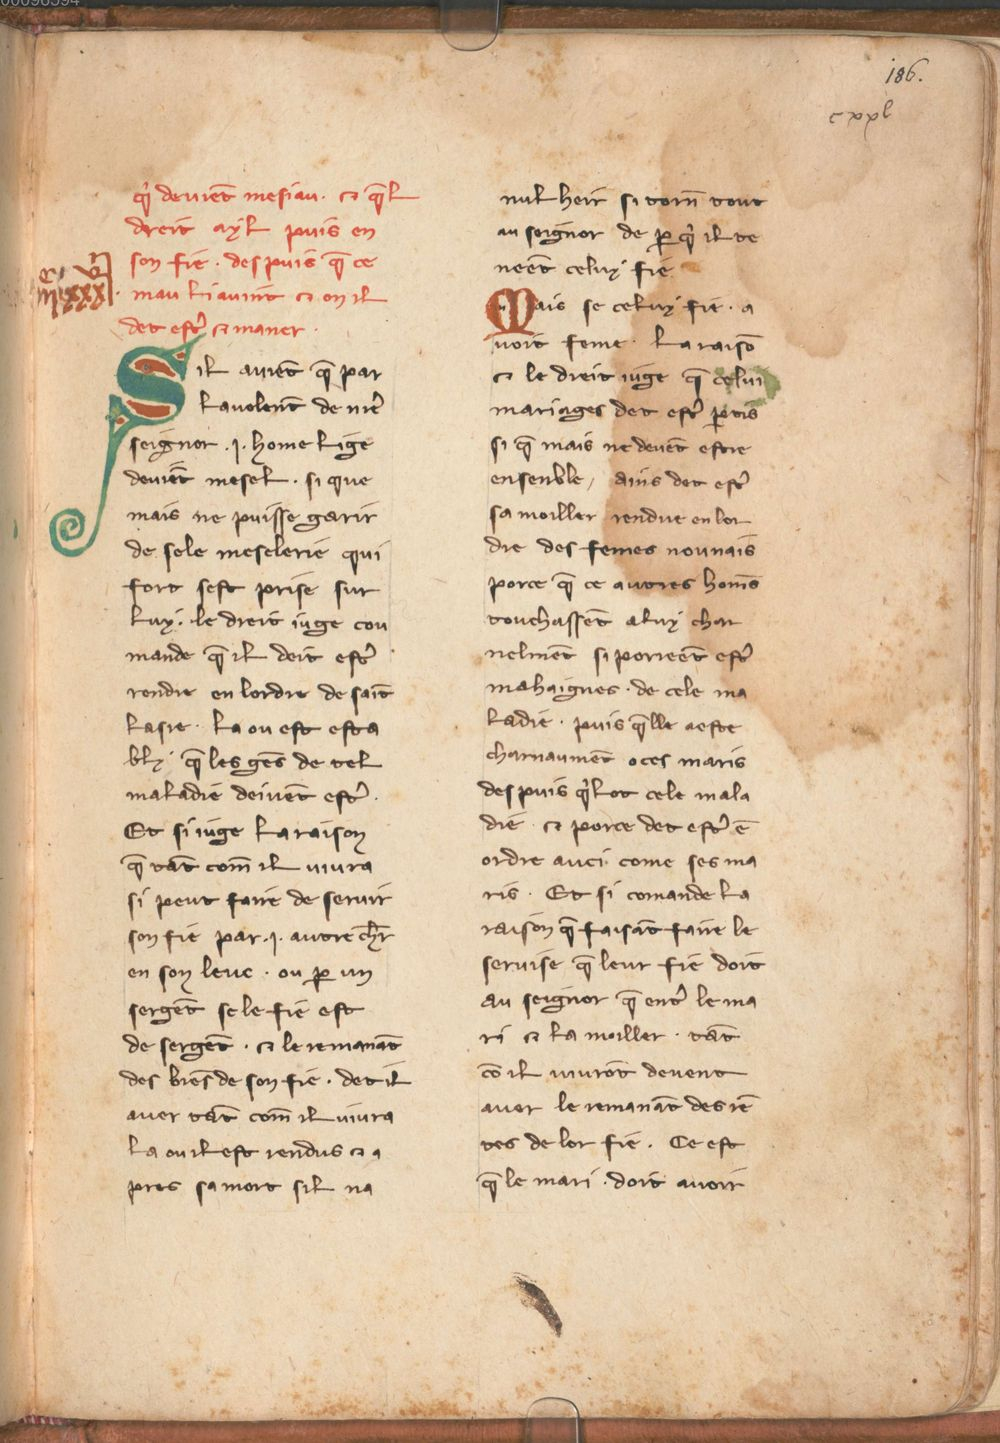 186.
cxxl
q̄ deuiēt mesiau. ⁊ q̄l
dreit ayl puis en
son fie. despuis q̄ ce
mau li auint ⁊ on il
det estr̄ ⁊ maner.
Sil auiēt q̄ par
la uolent de nrē
seignor .j. home lige
deuiēt mesel. si que
mais ne puisse garir
de sele meselerie qui
fort sest prise sur
luy. le dreit iuge cou
mande q̄ il deit estr̄
rendre en lordre de saīt
lasre. la ou est esta
bly q̄ les gēs de tel
maladie deiuēt estr̄.
Et si iuge la raison
q̄ tāt com̄ il uiura
si peut faire de seruir
son fie par .j. autre chr̄
en son leuc. ou ꝑ un
sergēt se le fie est
de sergēt. ⁊ le remanāt
des biēs de son fie. det il
auer tāt com̄ il uiura
la ou il est rendus ⁊ a
pres sa mort sil na
nul heir si torn̄ tout
au seignor de ꝑ q̄ il te
neēt celuy fie
Mais se celuy fie. a
uoit feme. la raisō
⁊ le dreit iuge q̄ celui
mariages det estr̄ ꝑtis
si q̄ mais ne deuēt estre
ensenble, ains det estr̄
sa moiller rendue en lor
dre des femes nounais
porce q̄ ce autres homs̄
touchassēt a luy char
nelmēt si porreēt estr̄
mahaignes. de cele ma
ladie. puis q̄lle aeste
charnaumēt o ces maris
despuis q̄l ot cele mala
die ⁊ porce det estr̄ ē
ordre auci come ses ma
ris. Et si comande la
raison q̄ faisāt faire le
seruise q̄ leur fie doit
au seignor q̄ entr̄ le ma
ri ⁊ la moiller. tāt
cō il uiurōt deuent
auer le remanāt des rē
tes de lor fie. Ce est
q̄ le mari. doit auoir